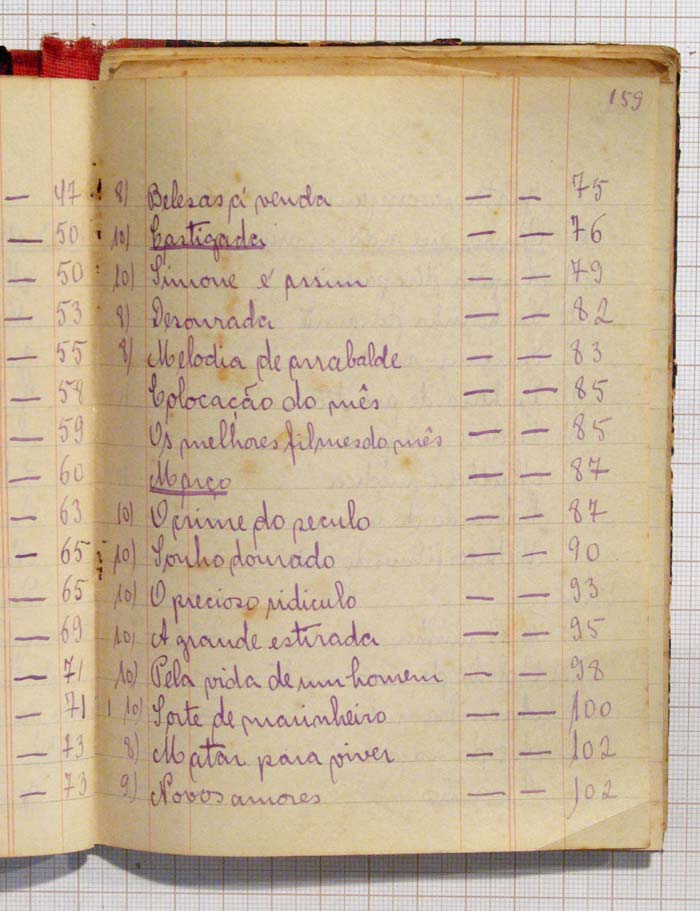 159
— 47
— 50
— 50
— 53
— 55
— 58
— 59
— 60
— 63
— 65
— 65
— 69
— 71
— 71
— 73
— 73
8) Belesas á venda — — 75
10) Castigada — — 76
10) Simone é assim — — 79
8) Desonrada — — 82
8) Melodia de arrabalde — — 83
Colocação do mês — — 85
Os melhores filmes do mês — — 85
Março — — 87
10) O crime do seculo — — 87
10) Sonho dourado — — 90
10) O precioso ridiculo — — 93
10) A grande estirada — — 95
10) Pela vida de um homem — — 98
10) Sorte de marinheiro — — 100
8) Matar para viver — — 102
9) Novos amores — — 102